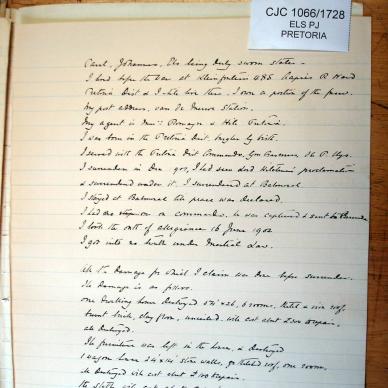 CJC 1066/1728
ELS PJ
PRETORIA
Carel Johannes Els being duly sworn states -
I lived before the War at Kleinfontein 485 Aapies R. Ward
Pretoria Dist & I still live there. I own a portion of the farm.
My post address, van der Merwe Station.
My agent is Messrs & Hile Pretoria.
I was born in the Pretoria Dist, burgher by birth.
I served with the Pretoria Dist Commando, Gen
I surrendered in Dec 1901, I had seen Lord Kitchener's proclamation
& surrendered under it. I surrendered at Balmoral
I stayed at Balmoral till peace was declared.
I had one stepson on commando. He was captured & sent to Bermuda
I took the oath of allegiance 16 June 1902
I got into no trouble under Martial Law.
All the damage for which I claim was done before surrender.
The damage is as follows.
One dwelling house destroyed 6 rooms, thatch & iron roof,
burnt brick, clay floor, unceiled. Will cost abt £200 to repair,
all destroyed.
The furniture was left in the house, & destroyed
1 wagon house stone walls, thatched roof, one room.
All destroyed will cost abt £100 to repair.